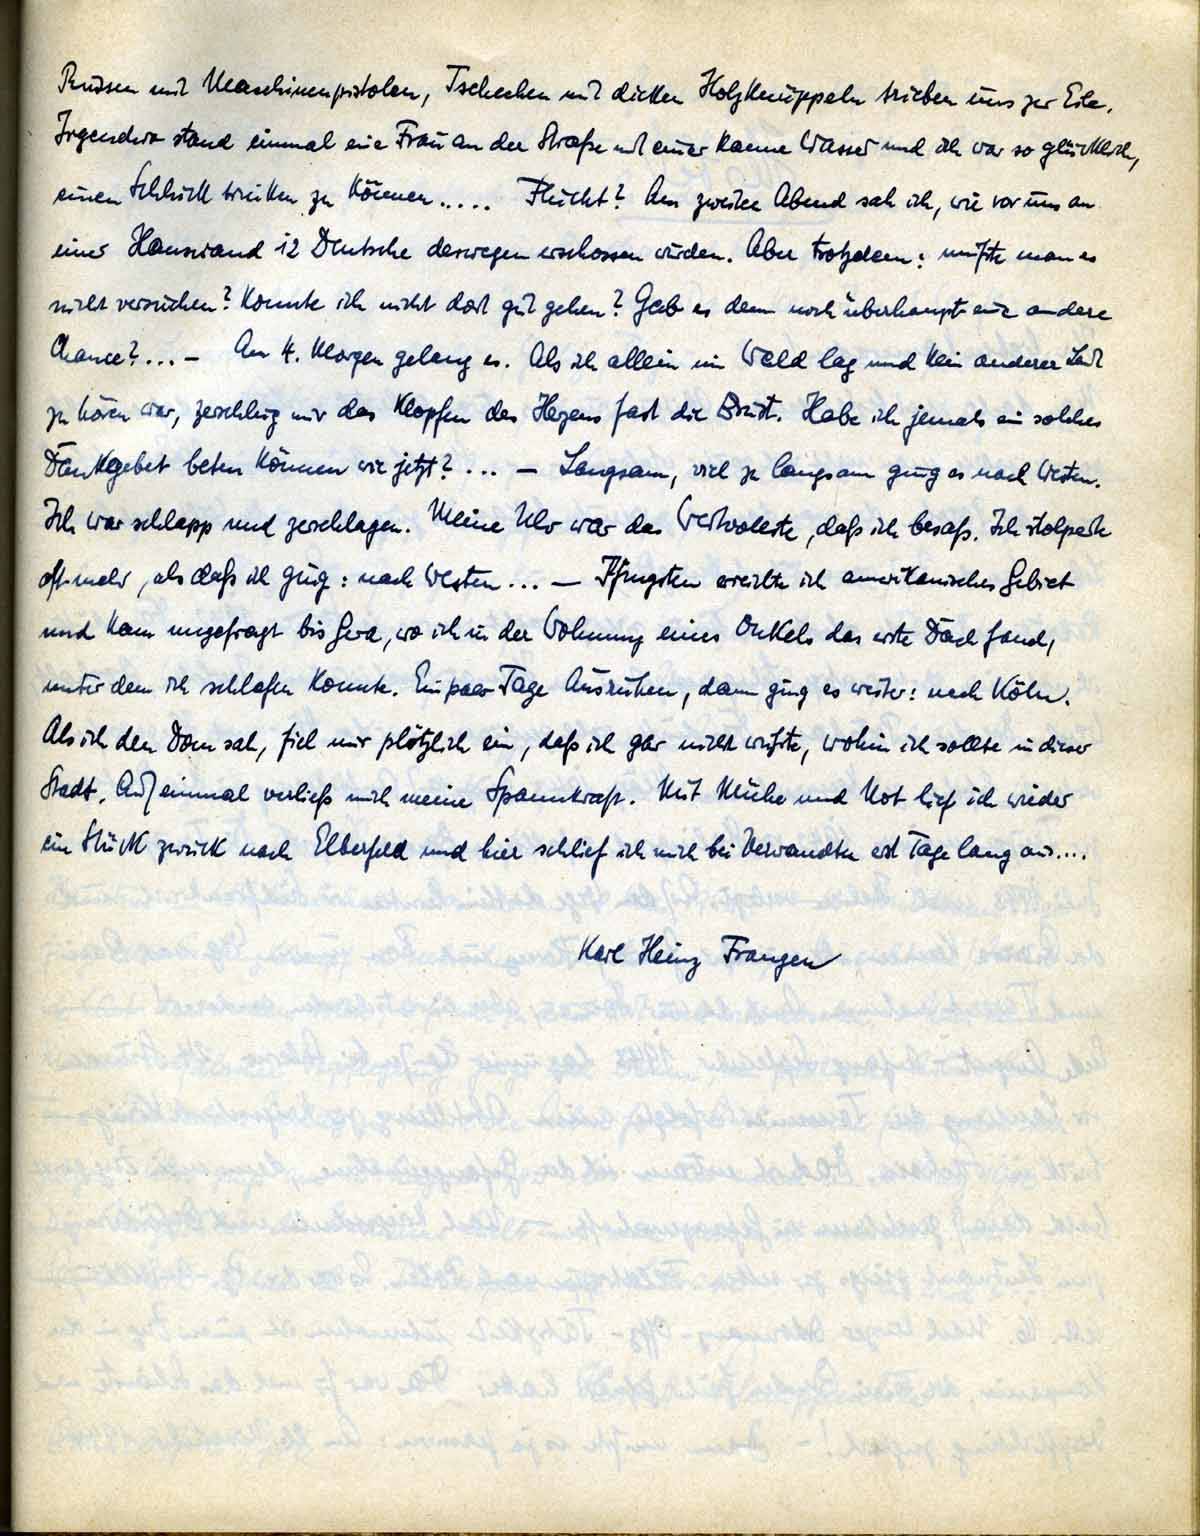 Russen mit Maschinenpistolen, Tschechen mit dicken Holzknüppeln trieben uns zur Eile.
Irgendwo stand einmal eine Frau an der Straße mit einer Kanne Wasser und ich war so glücklich,
einen Schluck trinken zu können..... Flucht? Am zweiten Abend sah ich, wie vor uns an
einer Hauswand 12 Deutsche deswegen erschossen wurden. Aber trotzdem: mußte man es
nicht versuchen? Konnte ich nicht dort gut gehen? Gab es denn noch überhaupt eine andere
Chance?... – Am 4. Morgen gelang es. Als ich allein im Wald lag und kein anderer Laut
zu hören war, zerschlug mir das Klopfen des Herzens fast die Brust. Habe ich jemals ein solches
Dankgebet beten können wie jetzt?... – Langsam, viel zu langsam ging es nach Westen.
Ich war schlapp und zerschlagen. Meine Uhr war das Wertvollste, daß ich besaß. Ich stolperte
oft mehr, als daß ich ging: nach Westen... – Pfingsten erreichte ich amerikanisches Gebiet
und kam ungefragt bis Gera, wo ich in der Wohnung eines Onkels das erste Dach fand,
unter dem ich schlafen konnte. Ein paar Tage Ausruhen, dann ging es weiter: nach Köln.
Als ich den Dom sah, fiel mir plötzlich ein, daß ich gar nicht wußte, wohin ich sollte in dieser
Stadt. Auf einmal verließ mich meine Spannkraft. Mit Mühe und Not lief ich wieder
ein Stück zurück nach Elberfeld und hier schlief ich mich bei Verwandten erst Tage lang aus....
Karl Heinz Frangen